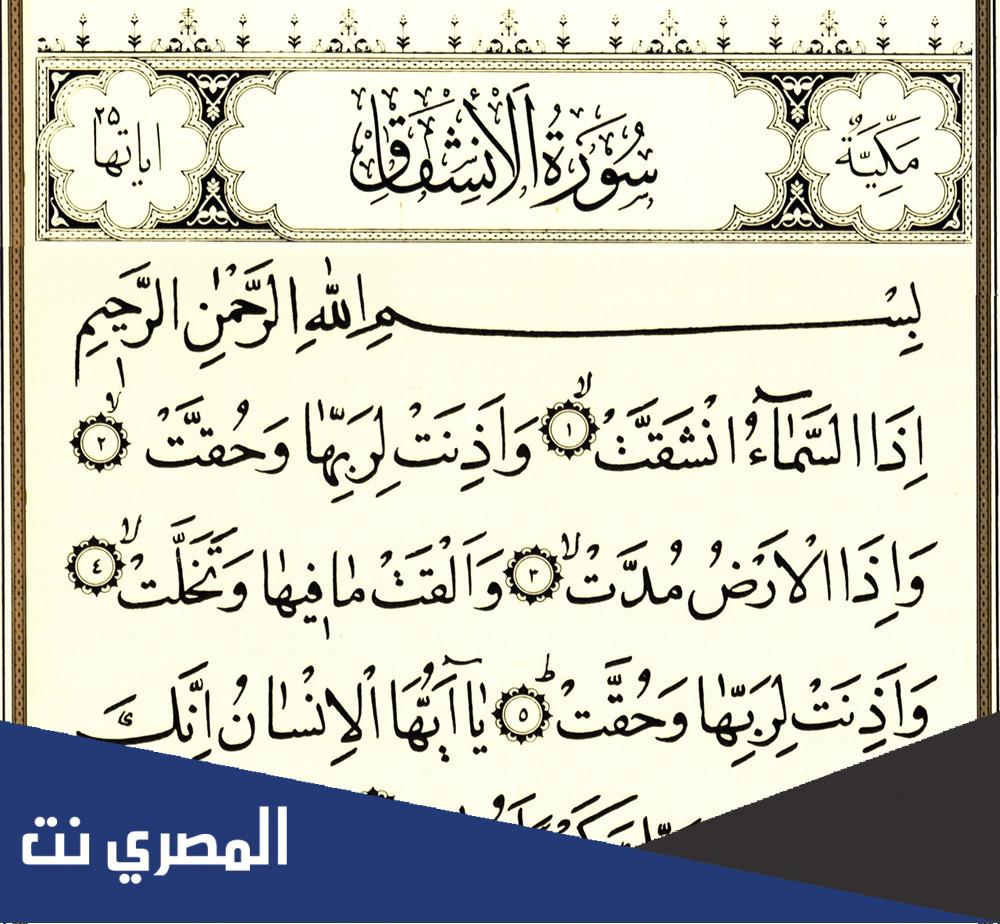 مَكِّيَّةٌ سُورَةُ الْاِنْشِقَاقِ اٰيَاتُهَا ٢٥
بِسْمِ اللّٰهِ الرَّحْمٰنِ الرَّحِيمِ
اِذَا السَّمَٓاءُ انْشَقَّتْۙ ١ وَاَذِنَتْ لِرَبِّهَا وَحُقَّتْۙ ٢
وَاِذَا الْاَرْضُ مُدَّتْۙ ٣ وَاَلْقَتْ مَا فِيهَا وَتَخَلَّتْۙ ٤
وَاَذِنَتْ لِرَبِّهَا وَحُقَّتْۜ ٥ يَٓا اَيُّهَا الْاِنْسَانُ اِنَّكَ
المصري نت